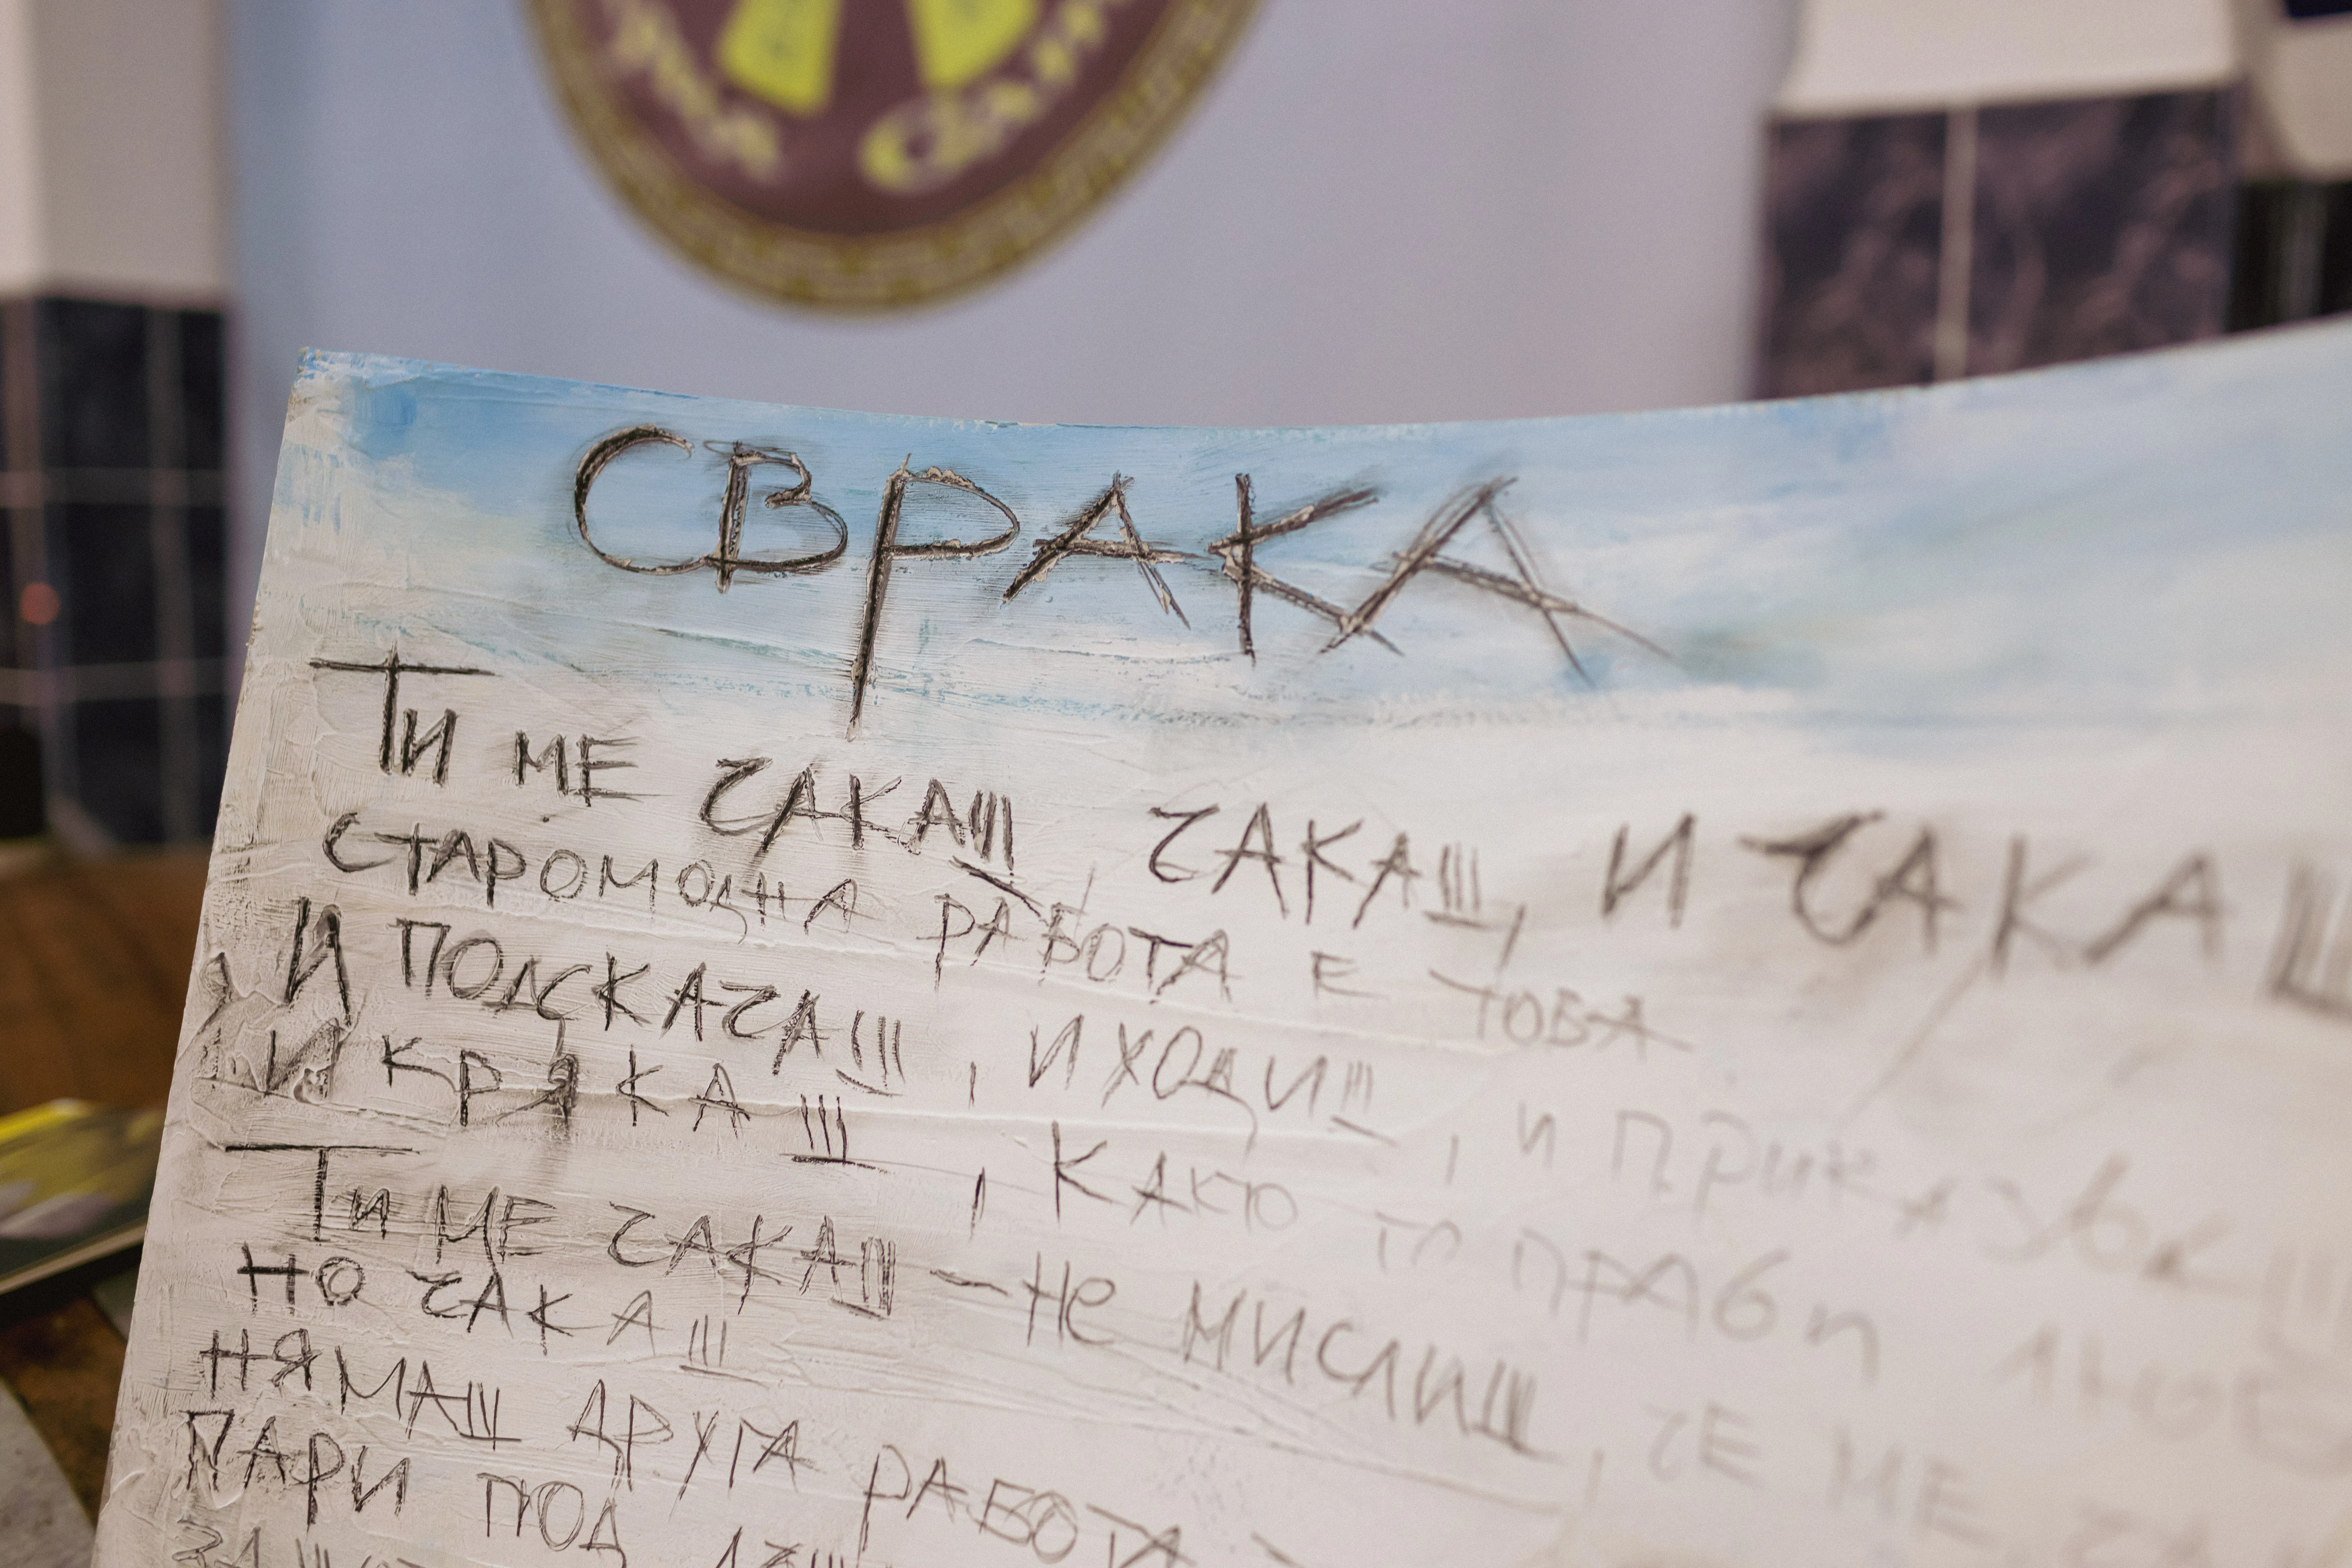 СВРАКА
Ти МЕ ЧАКАШ ЧАКАШ, И ЧАКАШ
СТАРОМОДНА РАБОТА Е ТОВА
И ПОДСКАЧАШ, И ХОДИШ, И ПРИКАЗВАШ
И КРЯКАШ, КАКТО ГО ПРАВИ
Ти МЕ ЧАКАШ - Не МИСЛИШ, ЧЕ МЕ
НО ЧАКАШ
НЯМАШ ДРУГА РАБОТА
ПАРИ ПОД